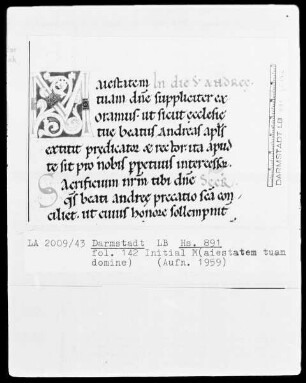 M aiestatem In die S ANDREE
tuam dn̄e suppliciter ex
oramus. ut sicut ecclesie
tue beatus Andreas apl̄s
extitit predicator & rector. ita apud
te sit pro nobis p̄petuus intercessor.
Sacrificium nr̄m tibi dn̄e Secr̄
q̄s beati andreę precatio sc̄a con
ciliet. ut cuius honore sollempnit
DARMSTADT LB
LA 2009/43 Darmstadt LB Hs. 891
fol. 142 Initial M(aiestatem tuam
domine) (Aufn. 1959)